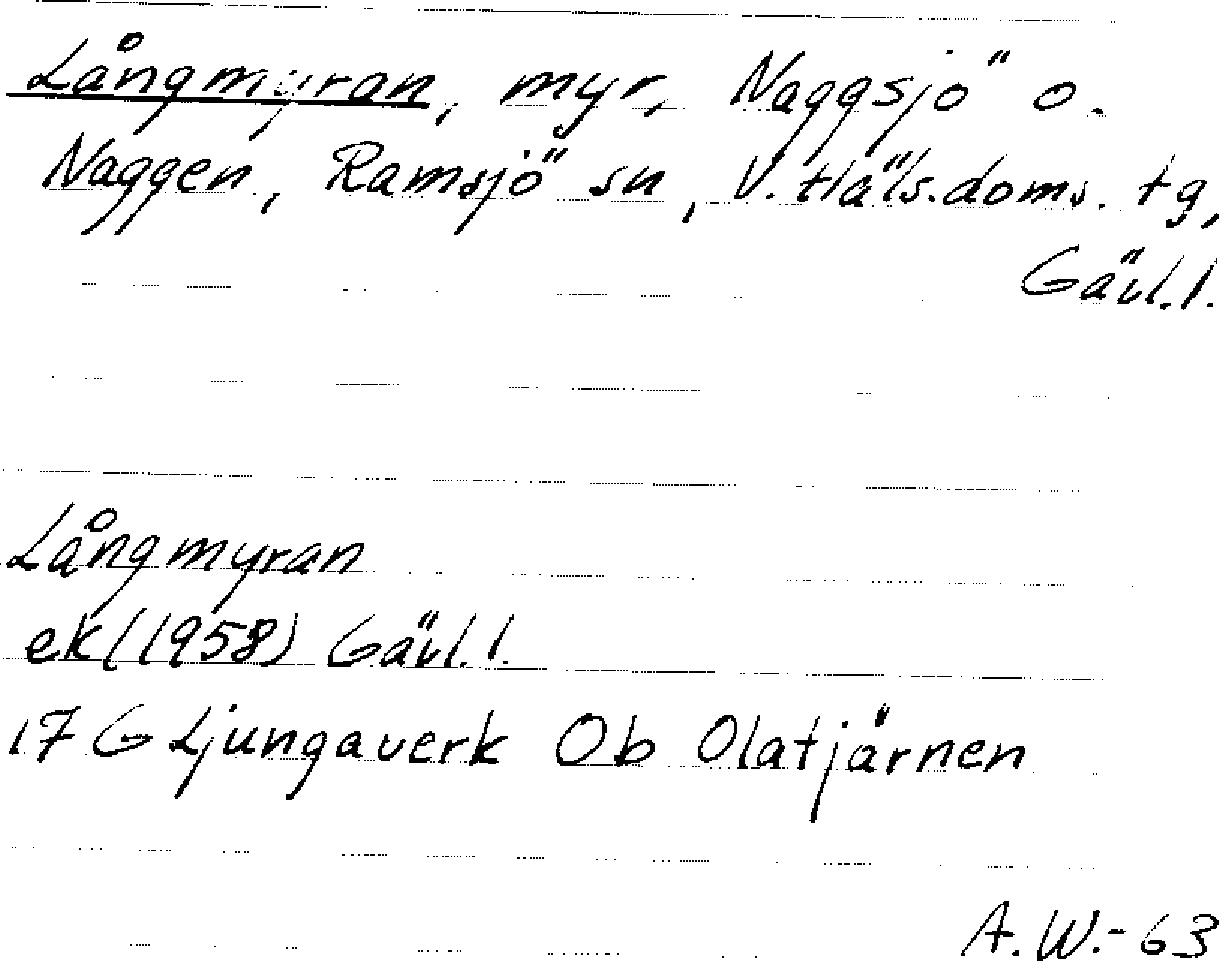 Långmyran, myr, Naggsjö o.
Naggen, Ramsjö sn, V. Häls. doms. tg,
Gävl.l.
Långmyran
ek (1958) Gävl.l.
17 G Ljungaverk Ob Olatjärnen
A.W.-63